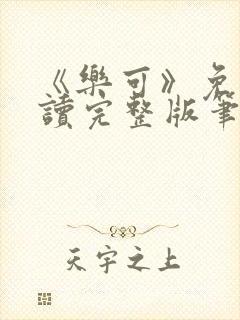 《樂可》免
讀完整版筆
天宇之上